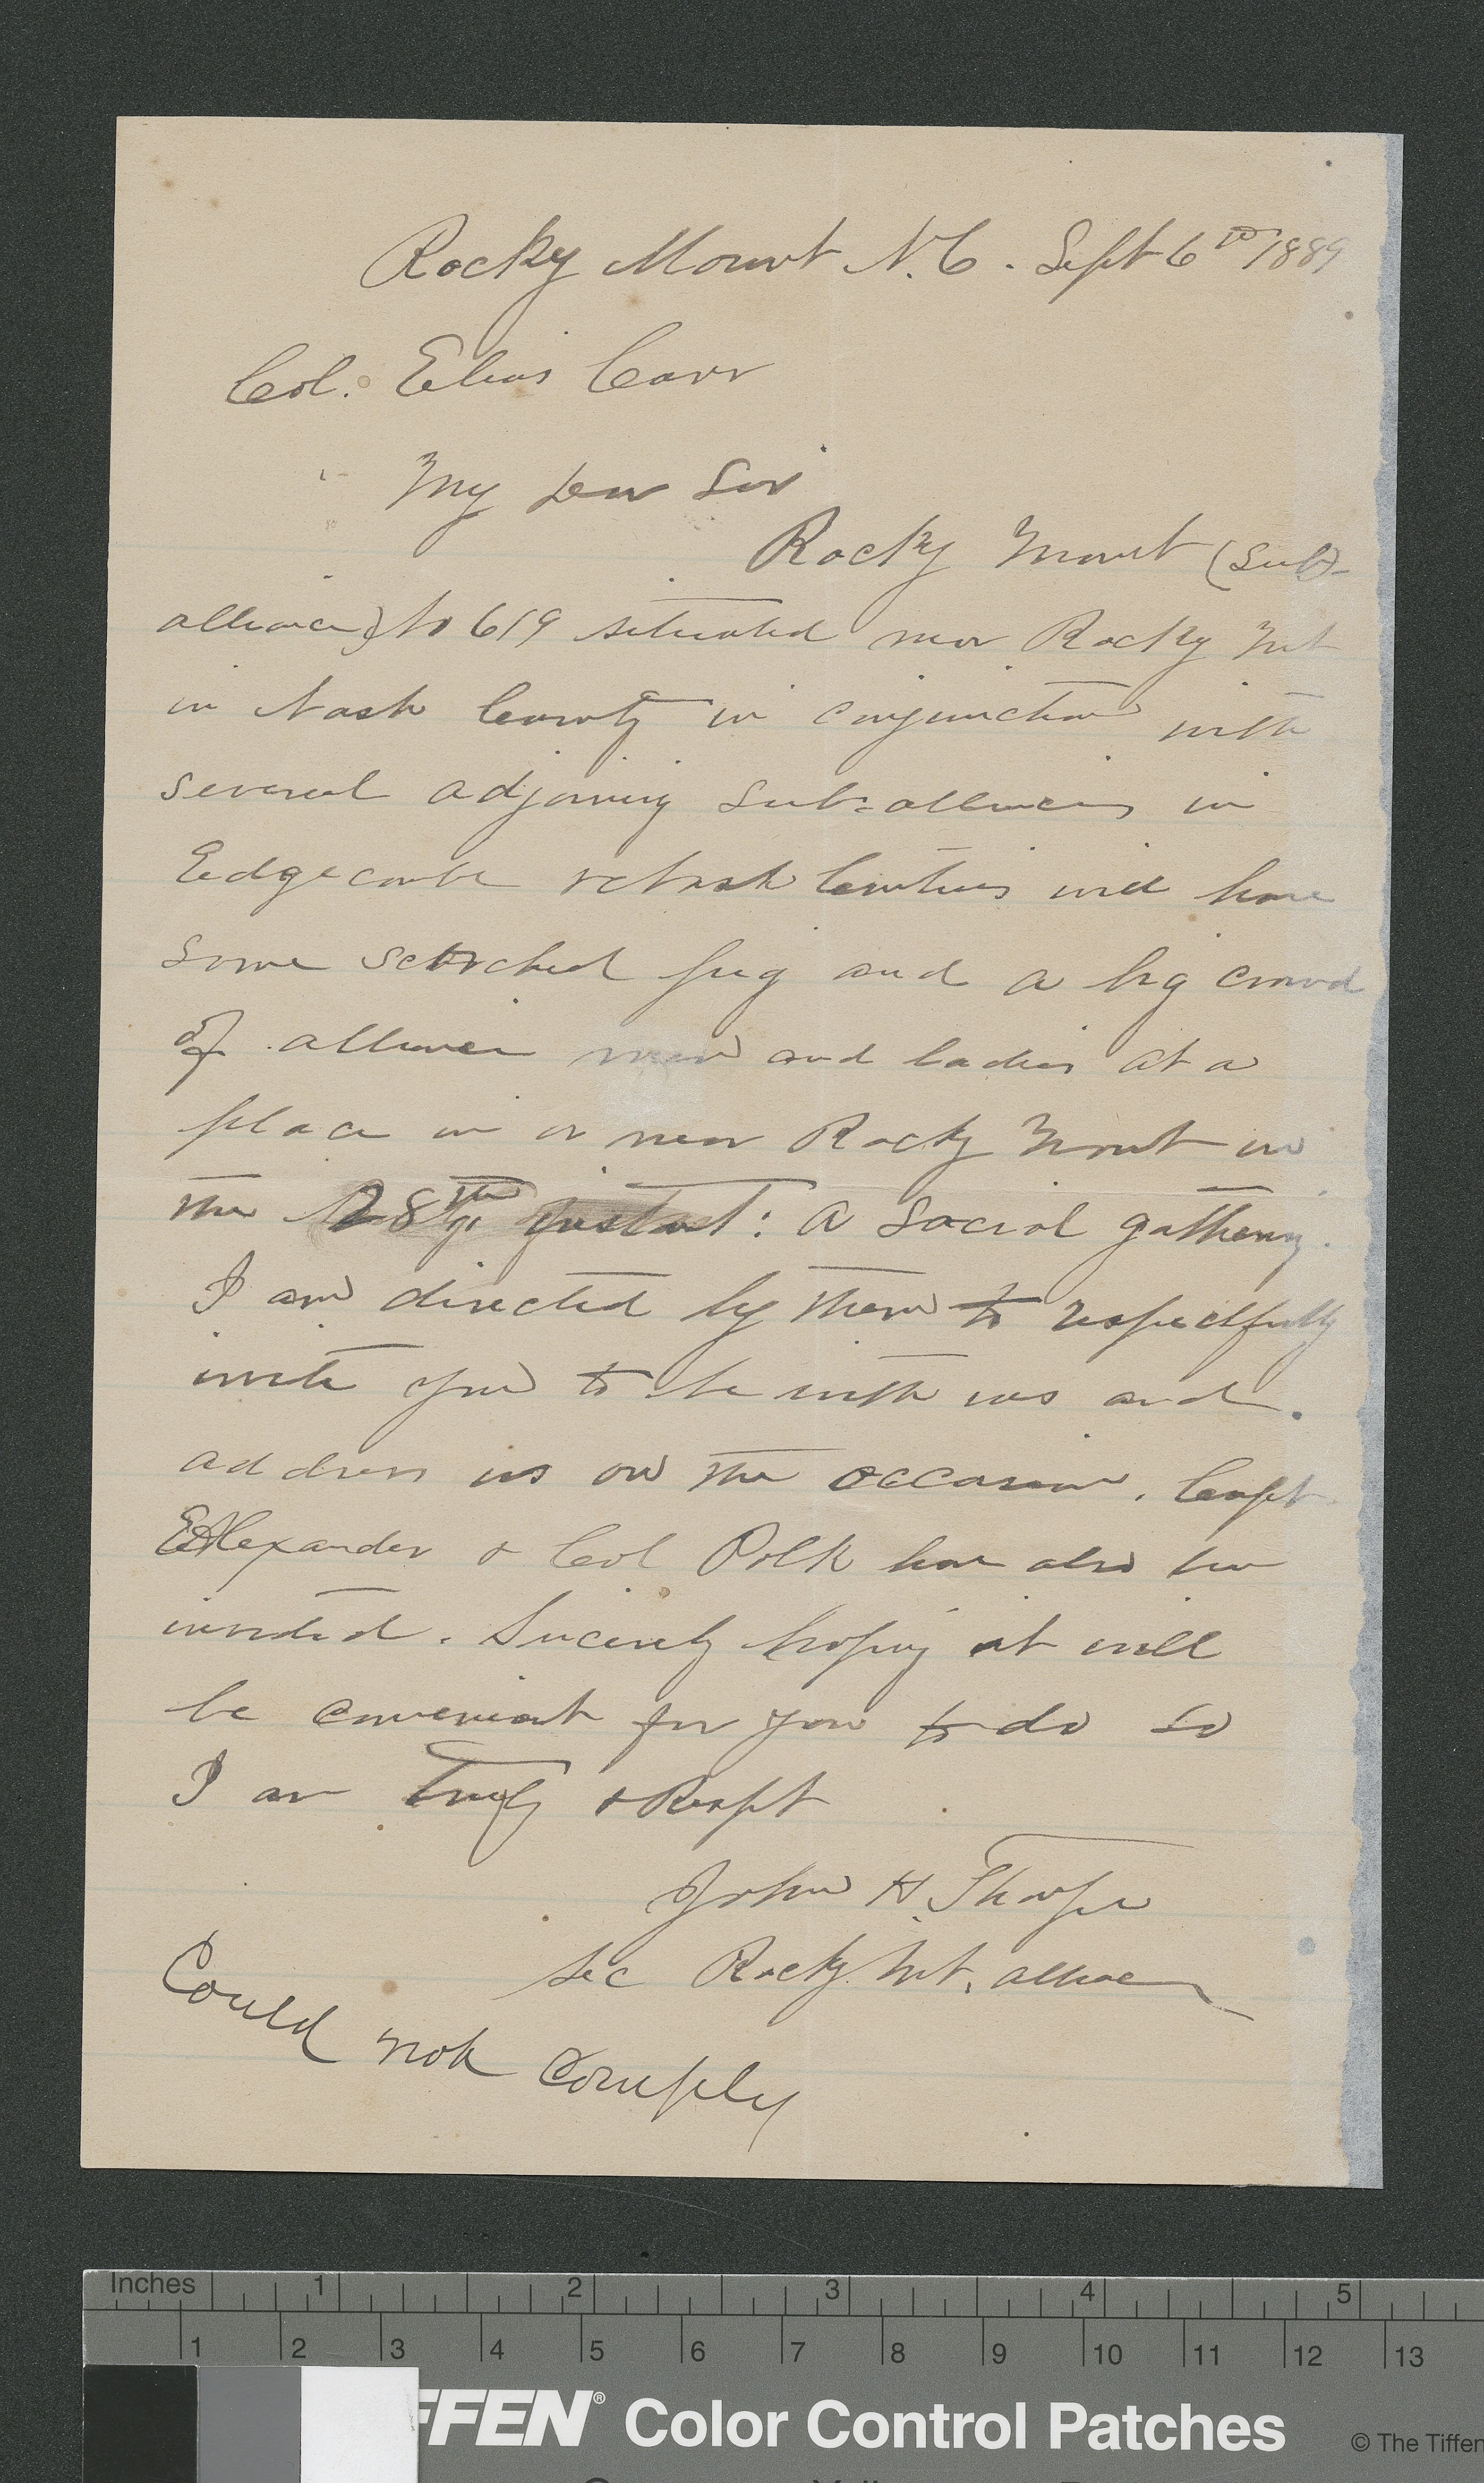 Rocky Mount N.C. Sept 6th 1889
Col. Elias Carr
My Dear Sir
Rocky Mount (Sub-
alliance) No 619 situated near Rocky Mt
in Nash County in conjunction with
several adjoining Sub-alliances in
Edgecombe & Nash Counties will have
some scorched pig and a big crowd
of alliance men and ladies at a
place in or near Rocky Mount on
the 28th instant: a social gathering.
I am directed by them to respectfully
invite you to be with us and
address us on the occasion. Capt
Alexander & Col Polk have also been
invited. Sincerely hoping it will
be convenient for you to do so
I am truly & Respt
John H. Thorpe
Sec Rocky Mt. alliance
Could not comply
Inches 1 2 3 4 5
1 2 3 4 5 6 7 8 9 10 11 12 13
FFEN® Color Control Patches © The Tiffen